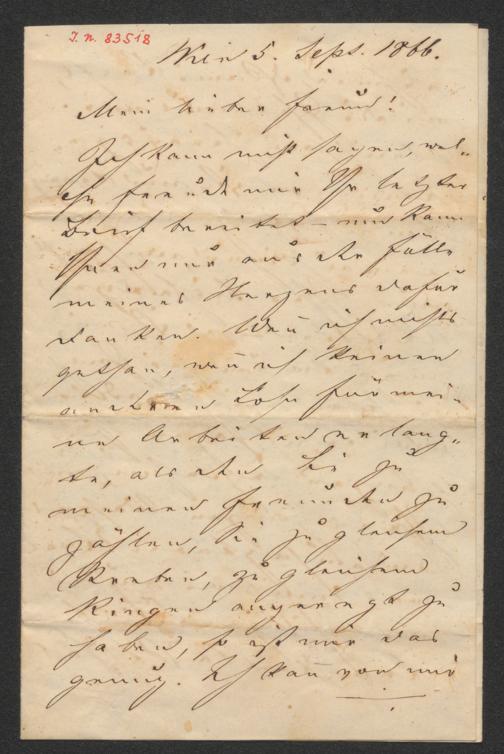 I. N. 83518
Wien 5. Sept. 1866.
Mein lieber Freund!
Ich kann nicht sagen, wel-
che Freude mir Ihr letzter
Brief bereitet – und kann
Ihnen nur aus der Fülle
meines Herzens dafür
danken. Wenn ich nichts
gethan, wenn ich keinen
anderen Lohn für mei-
ne Arbeiten erlang-
te, als den Sie zu
meinen Freunden zu
zählen, Sie zu gleichem
Streben, zu gleichem
Ringen angeregt zu
haben, so ist mir das
genug. Ich kann von mir